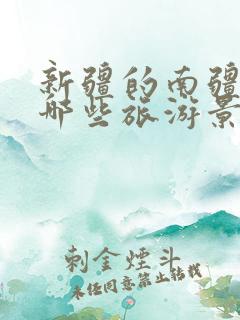 新疆的南疆
哪些旅游景
刺金煙斗
未经同意禁止转载